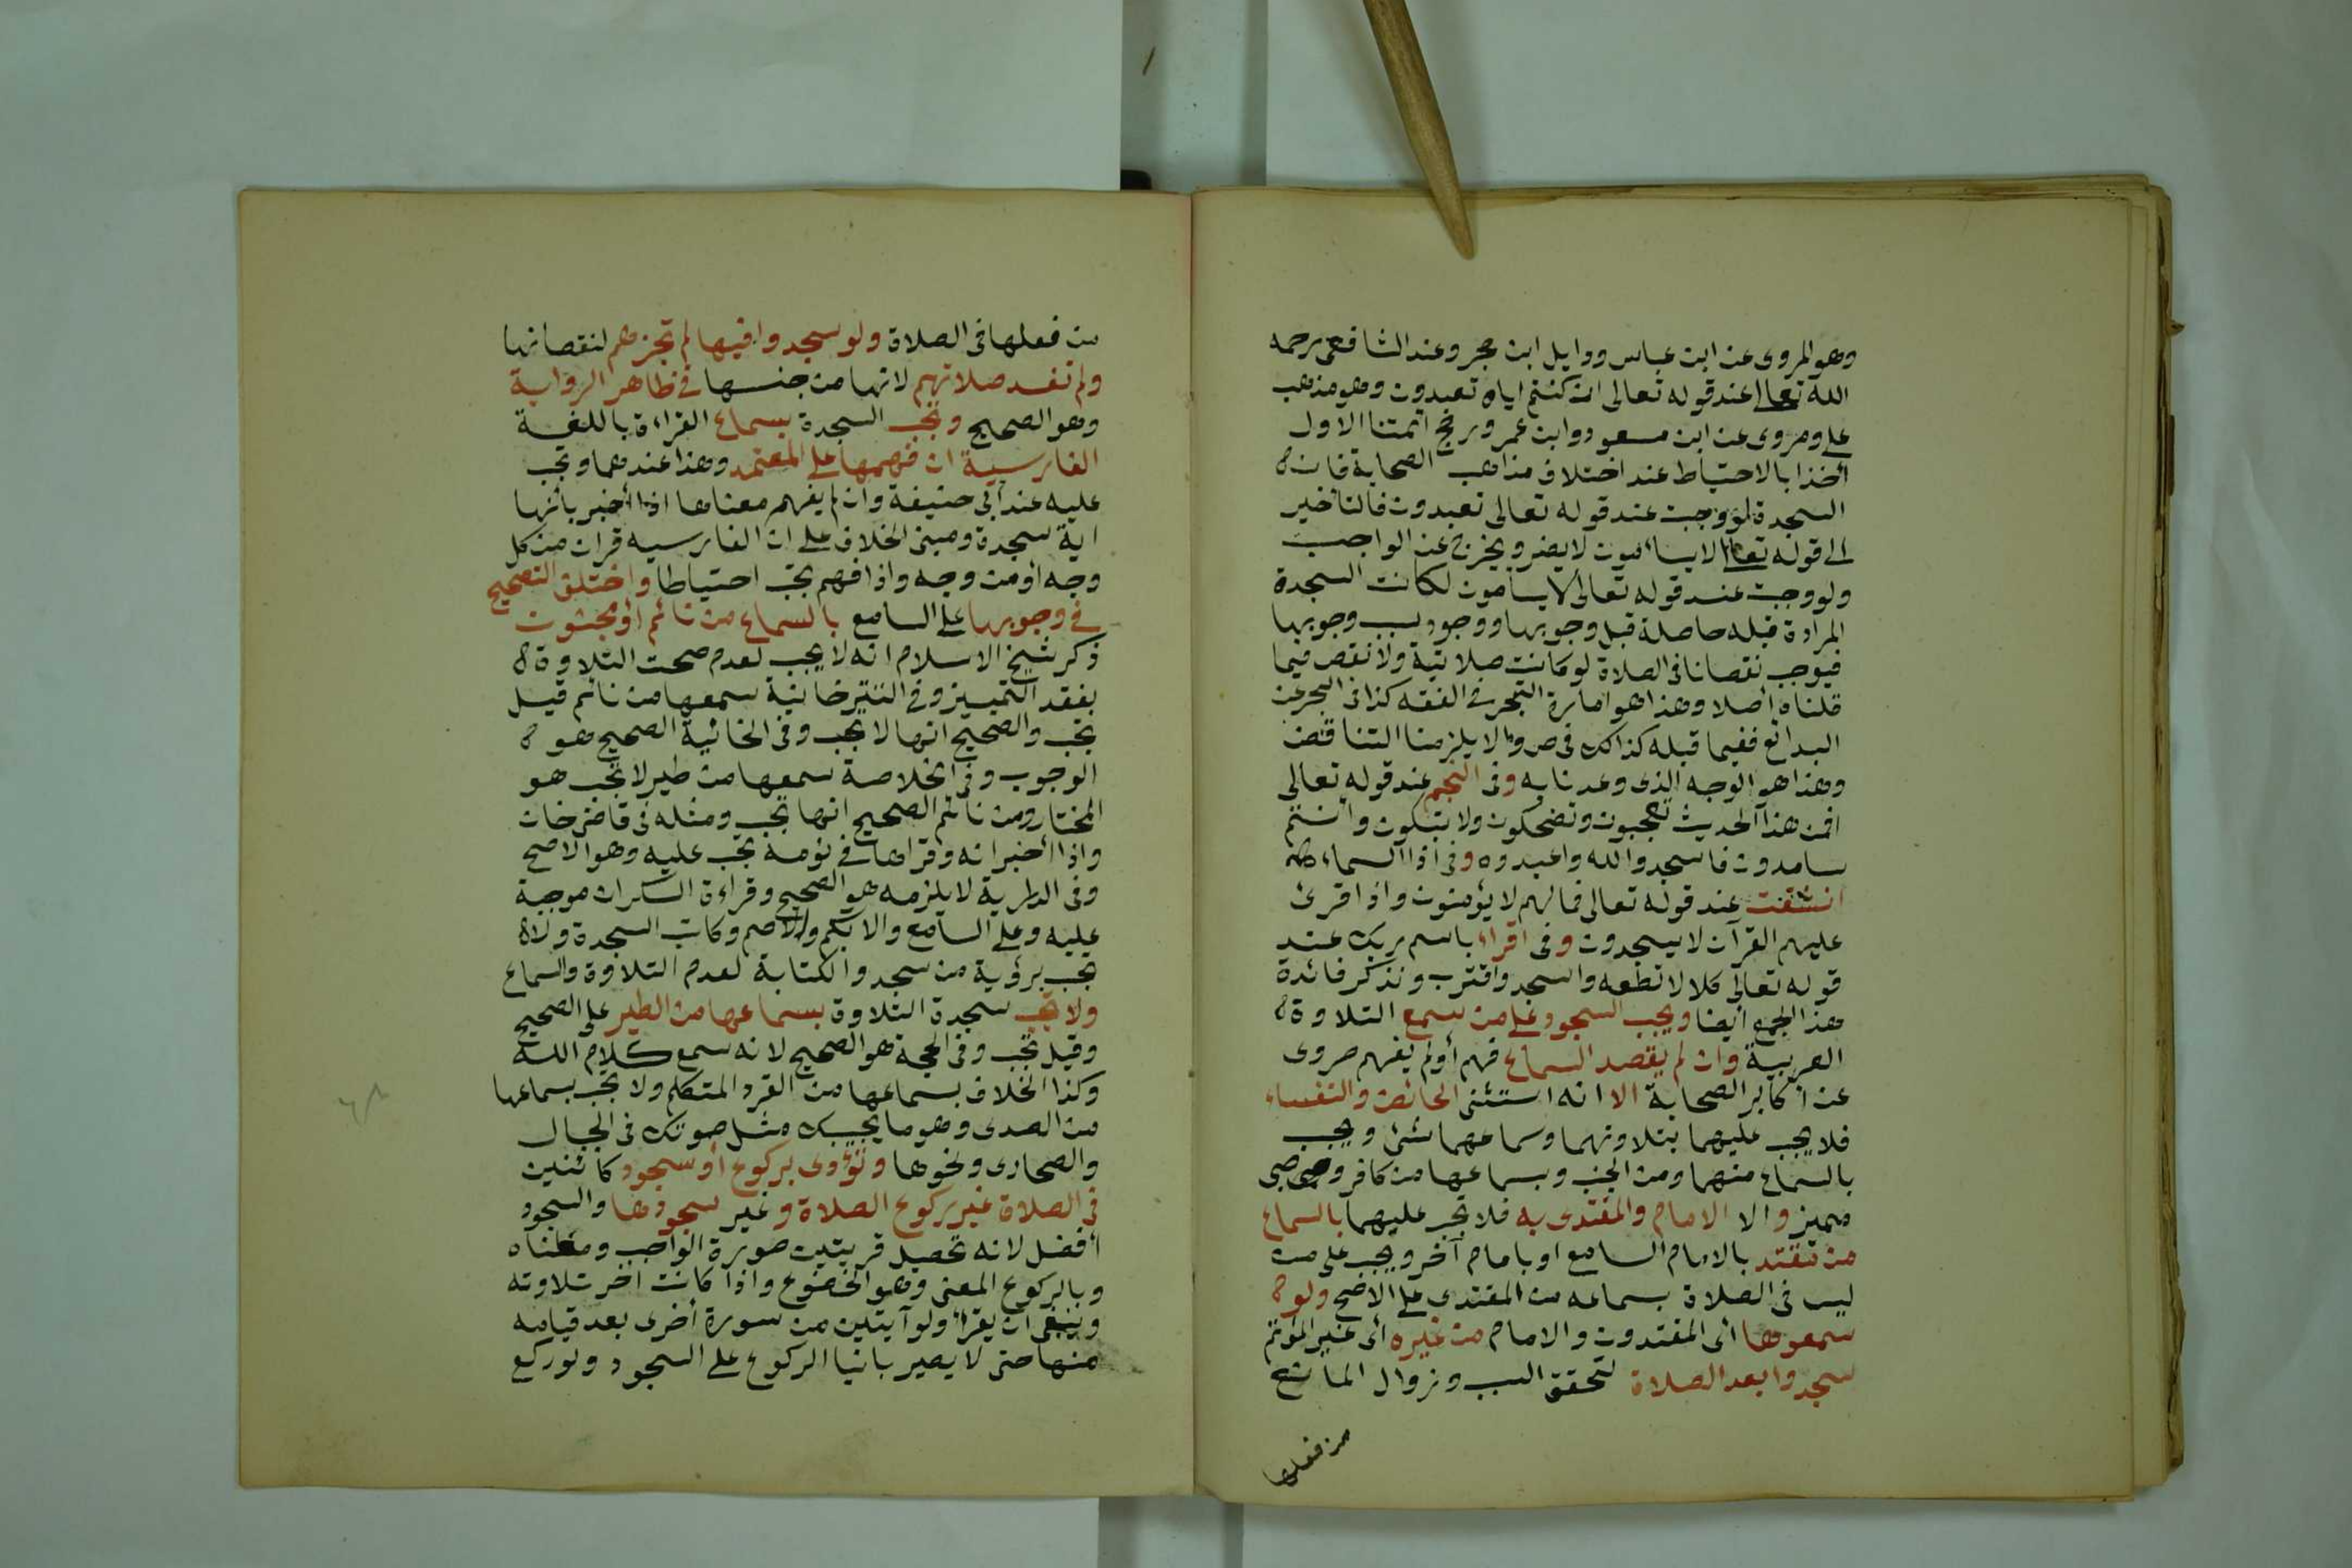 وهو المروى عن ابن عباس ووايل ابن حجر وعند الشافعى رحمه
الله تعالى عند قوله تعالى ان كنتم اياه تعبدون وهو مذهب
على ومروى عن ابن مسعود وابن عمر ورجح ائمتنا الاول
أخذا بالاحتياط عند اختلاف مذاهب الصحابة فان
السجدة لو وجبت عند قوله تعالى تعبدون فالتأخير
الى قوله تعالى لا يسأمون لا يضر ويخرج عن الواجب
ولو وجبت عند قوله تعالى لا يسأمون لكانت السجدة
المرادة قبله حاصلة قبل وجوبها ووجود سبب وجوبها
فيوجب نقصانا فى الصلاة لو كانت صلاتية ولا نقص فيما
قلناه أصلا وهذا هو امارة التبحر فى الفقه كذا فى البحر عن
البدائع ففيما قبله كذلك فى ص والا يلزمنا التناقض
وهذا هو الوجه الذى وعدنا به وفى النجم عند قوله تعالى
افمن هذا الحديث تعجبون وتضحكون ولا تبكون وأنتم
سامدون فاسجدوا لله واعبدوه وفى اذا السماء
انشقت عند قوله تعالى فما لهم لا يؤمنون واذا قرئ
عليهم القرآن لا يسجدون وفى اقراء باسم ربك عند
قوله تعالى كلا لا تطعه واسجد واقترب ونذكر فائدة
هذا الجمع أيضا ويجب السجود على من سمع التلاوة
العربية وان لم يقصد السماع فهم أو لم يفهم مروى
عن أكابر الصحابة الا انه استثنى الحائض والنفساء
فلا يجب عليهما بتلاوتهما وسماعهما شئ ويجب
بالسماع منهما ومن الجنب وبسماعها من كافر وصبى
مميز والا الامام والمقتدى به فلا تجب عليهما بالسماع
من مقتد بالامام السامع او بامام آخر ويجب على من
ليس فى الصلاة بسماعه من المقتدى على الاصح ولو
سمعوها أى المقتدون والامام من غيره أى غير المؤتم
سجدوا بعد الصلاة لتحقق السبب وزوال المانع
من فعلها
من فعلها فى الصلاة ولو سجدوا فيها لم تجزهم لنقصانها
ولم تفسد صلاتهم لانها من جنسها فى ظاهر الرواية
وهو الصحيح وتجب السجدة بسماع القراءة باللغة
الفارسية ان فهمها على المعتمد وهذا عندهما وتجب
عليه عند أبى حنيفة وان لم يفهم معناها اذا أخبر بأنها
اية سجدة ومبنى الخلاف على ان الفارسيه قران من كل
وجه أو من وجه واذا فهم تجب احتياطا واختلف التصحيح
فى وجوبها على السامع بالسماع من نائم أو مجنون
ذكر شيخ الاسلام انه لا يجب لعدم صحت التلاوة
بفقد التمييز وفى التترخانية سمعها من نائم قيل
تجب والصحيح انها لا تجب وفى الخانية الصحيح هو
الوجوب وفى الخلاصة سمعها من طير لا تجب هو
المختار ومن نائم الصحيح انها تجب ومثله فى قاضى خان
واذا أخبر انه قراها فى نومه تجب عليه وهو الاصح
وفى الدراية لا يلزمه هو الصحيح وقراءة السكران موجبة
عليه وعلى السامع والابكم والاصم وكاتب السجدة ولا
تجب برؤية من سجد والكتابة لعدم التلاوة والسماع
ولا تجب سجدة التلاوة بسماعها من الطير على الصحيح
وقيل تجب وفى الحجة هو الصحيح لانه سمع كلام الله
وكذا الخلاف بسماعها من القرد المتكلم ولا تجب بسماعها
من الصدى وهو ما يجيبك مثل صوتك فى الجبال
والصحارى ونحوها وتؤدى بركوع أو سجود كائنين
فى الصلاة غير ركوع الصلاة وغير سجودها والسجود
أفضل لانه تحصيل قربتين صورة الواجب ومعناه
وبالركوع المعنى وهو الخضوع واذا كانت اخر تلاوته
وينبغى ان يقرأ ولو آيتين من سورة أخرى بعد قيامه
منها حتى لا يصير بانيا الركوع على السجود ولو ركع